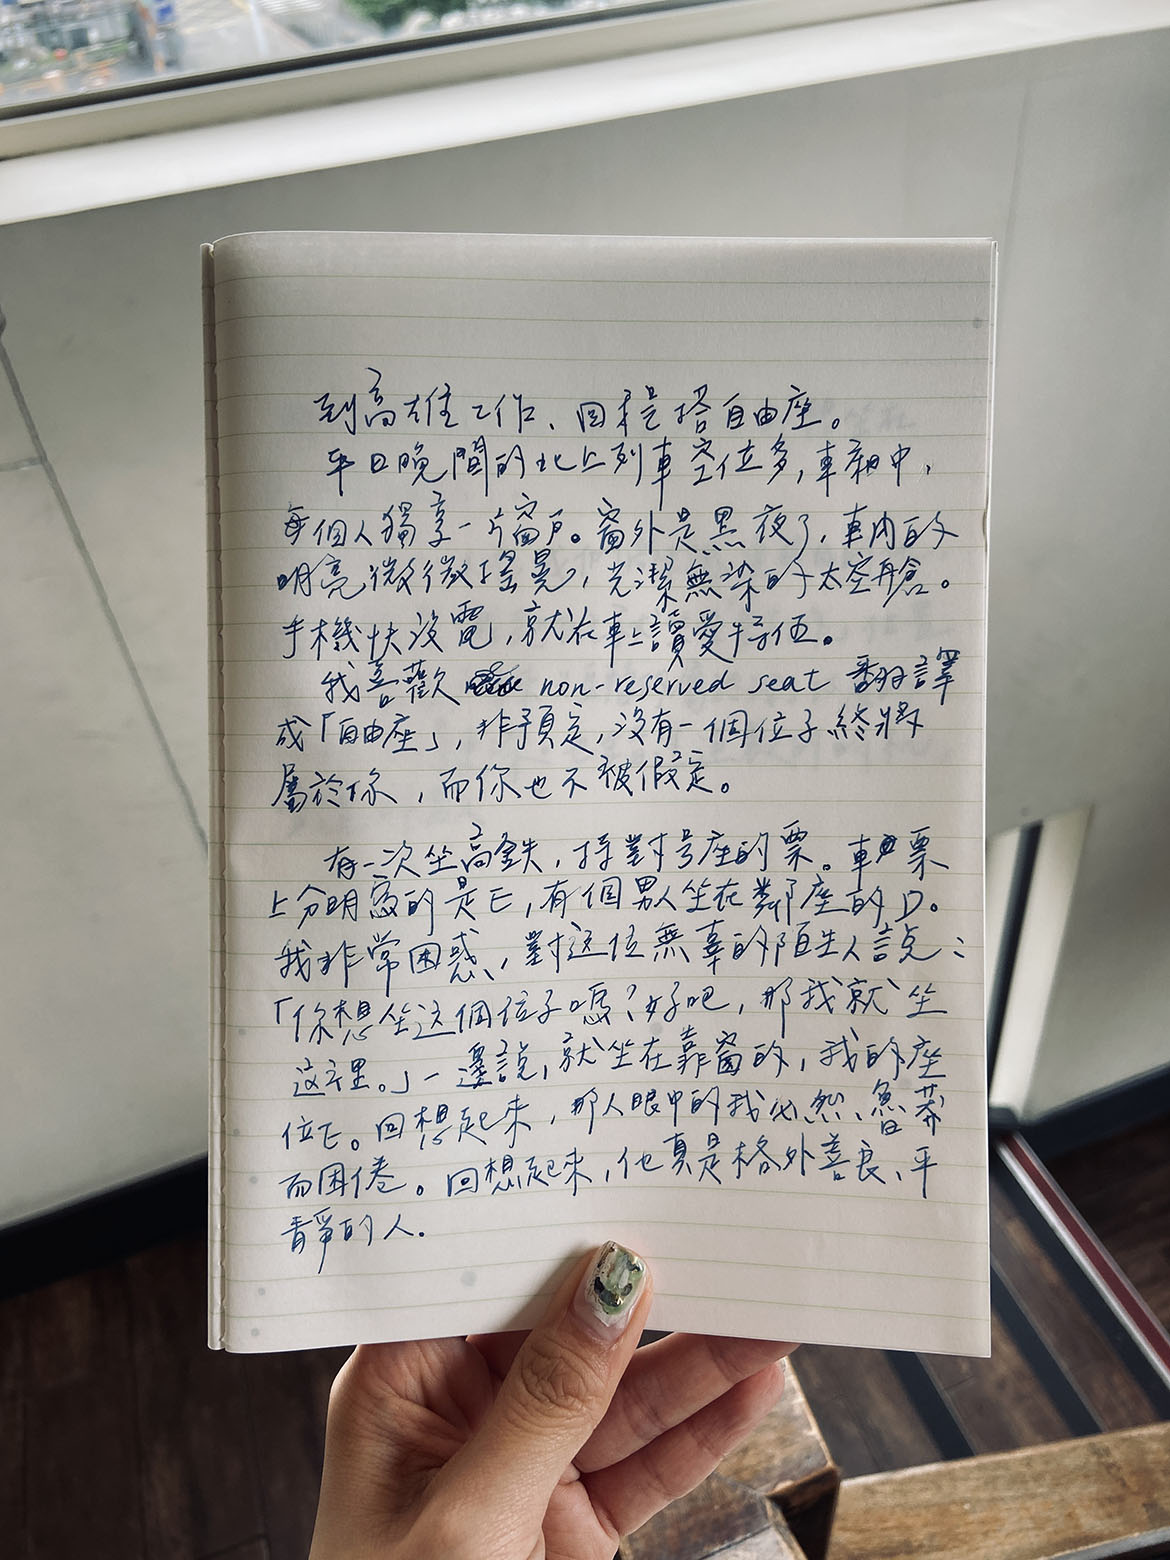 到高雄工作、回程是搭自由座。
平日晚間的北上列車空位多,車廂中,
每個人獨享一片窗戶。窗外是黑夜了,車內的
明亮微微搖晃,光潔無染的太空艙。
手機快沒電,就在車上讀愛特伍。
我喜歡 non-reserved seat 翻譯
成「自由座」,非預定,沒有一個位子終將
屬於你,而你也不被假定。
有一次坐高鐵,持對号座的票。車票
上分明寫的是E,有個男人坐在鄰座的D。
我非常困惑,對这位無辜的陌生人說:
「你想坐这個位子嗎?好吧,那我就坐
这裡。」一邊說,就坐在靠窗的,我的座
位E。回想起來,那人眼中的我必然、魯莽
而困倦。回想起來,他真是格外善良、平
靜的人.